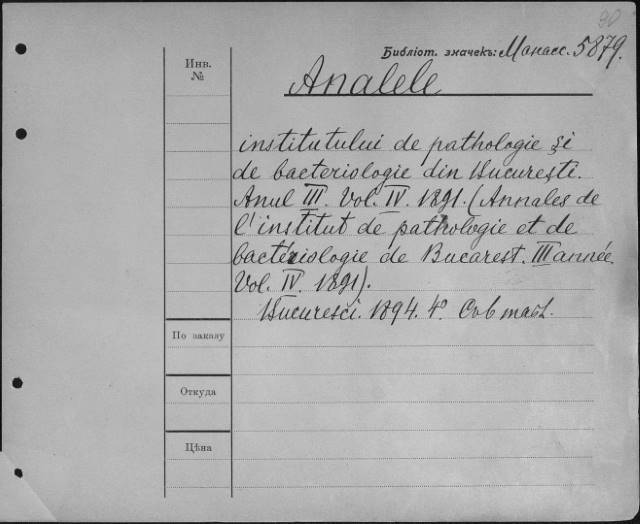 30
Библіот. значекъ: Манасс. 5879.
Инв.
№
Analele
institutului de pathologie şi
de bacteriologie din Bucureşti.
Anul III. Vol. IV. 1891. (Annales de
l'institut de pathologie et de
bactériologie de Bucarest. III année.
Vol. IV. 1891).
Bucuresci. 1894. 4°.
По заказу
Откуда
Цѣна